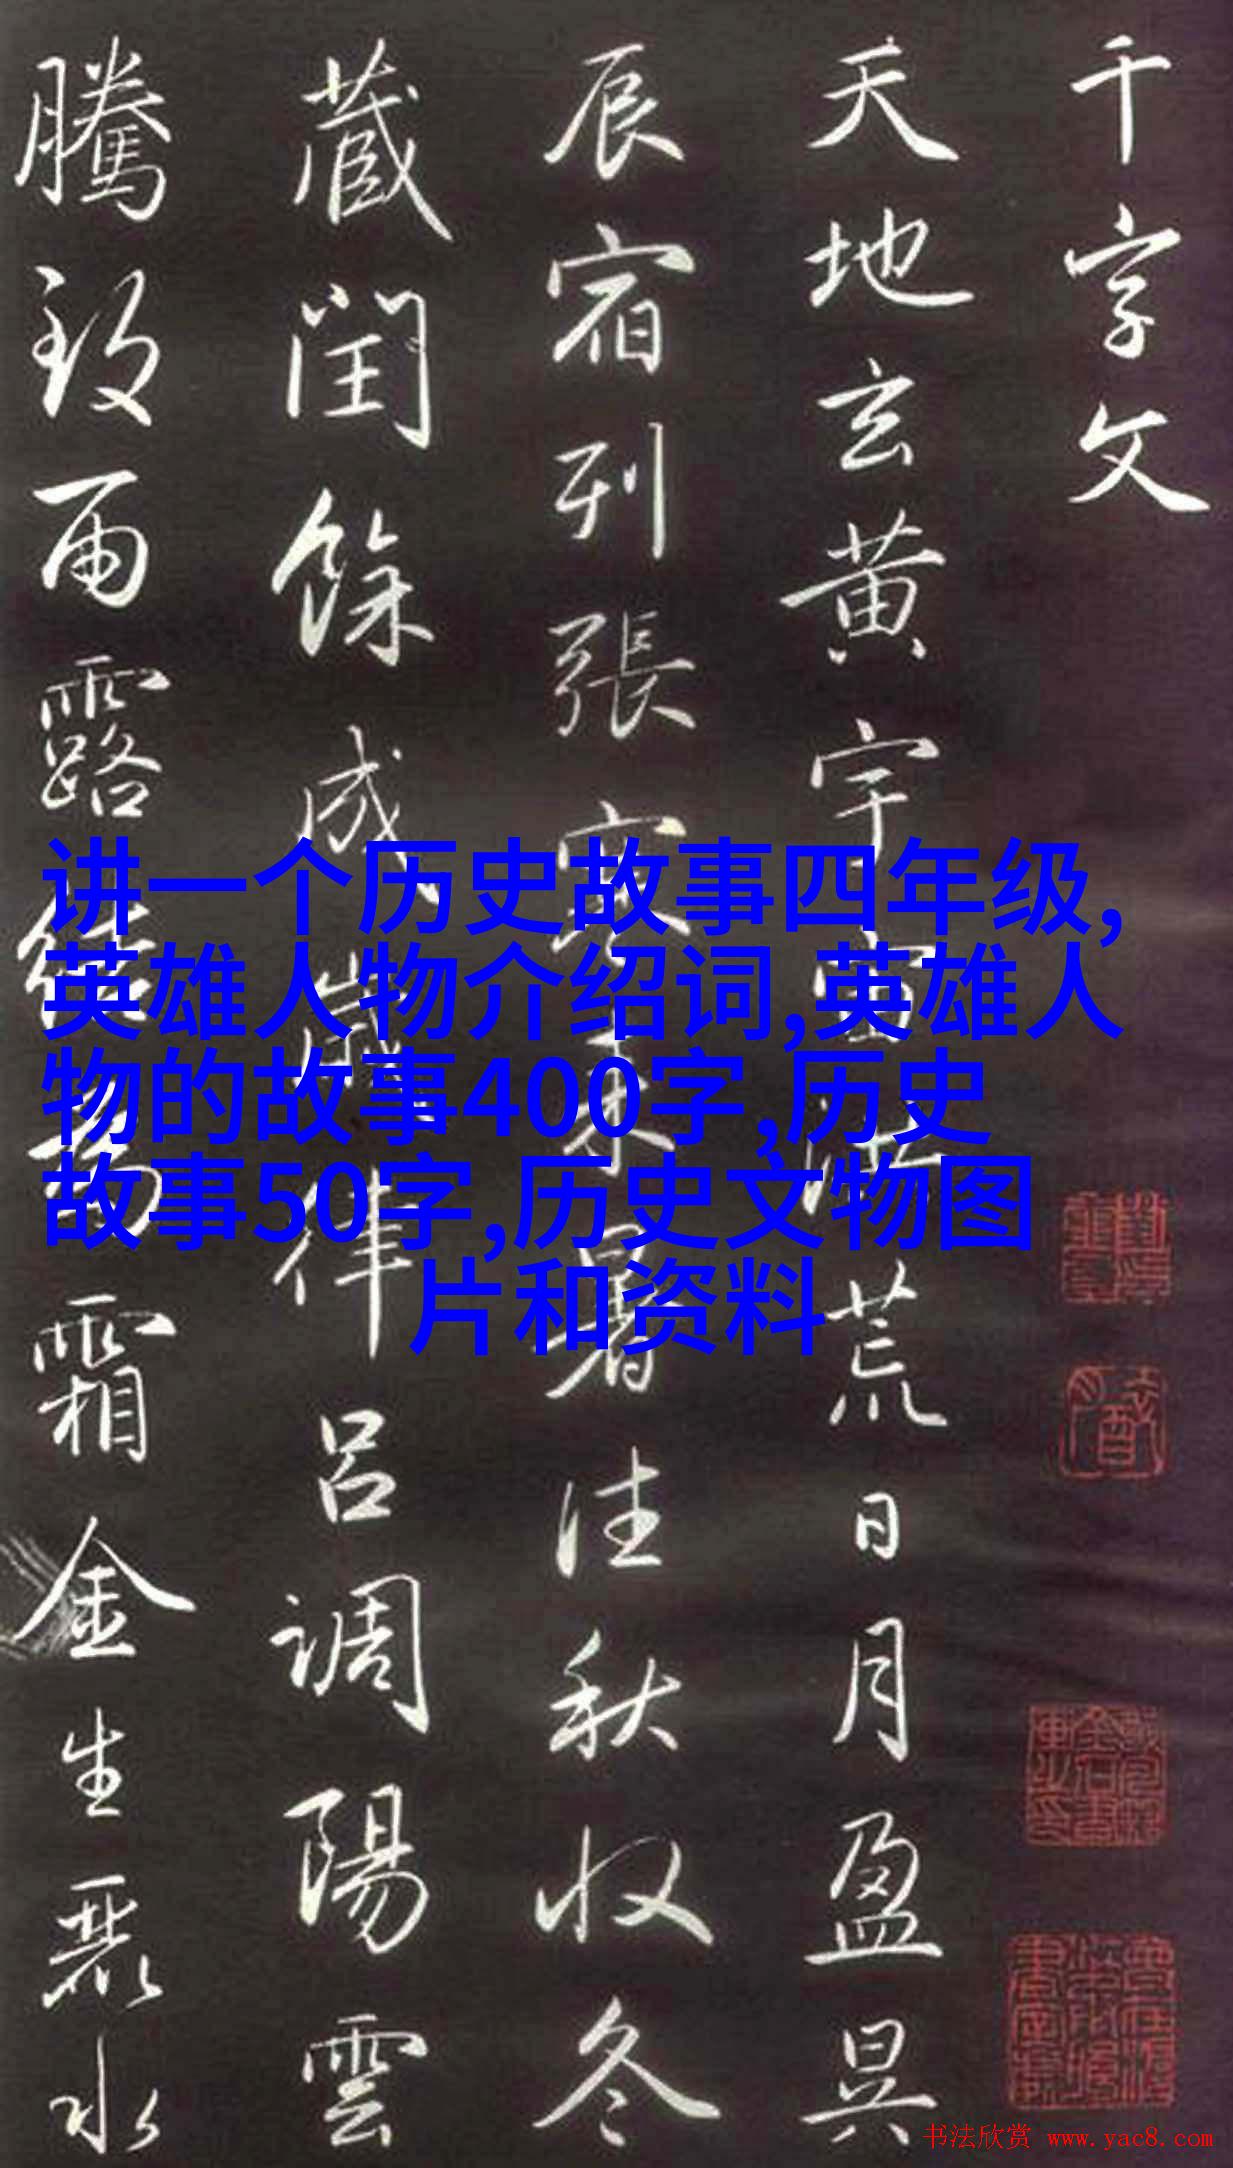 千字文
天地玄黄宇宙洪荒日月盈昃
辰宿列張寒来暑往秋收冬
藏閏餘成歲律呂調陽雲
騰致雨露結為霜金生麗水
讲一个历史故事四年级,
英雄人物介绍词,英雄人
物的故事400字,历史
故事50字,历史文物图
片和资料
书法欣赏 www.yac8.com